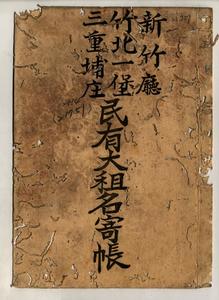 新竹廳
竹北一堡
三重埔庄
民有大租名寄帳